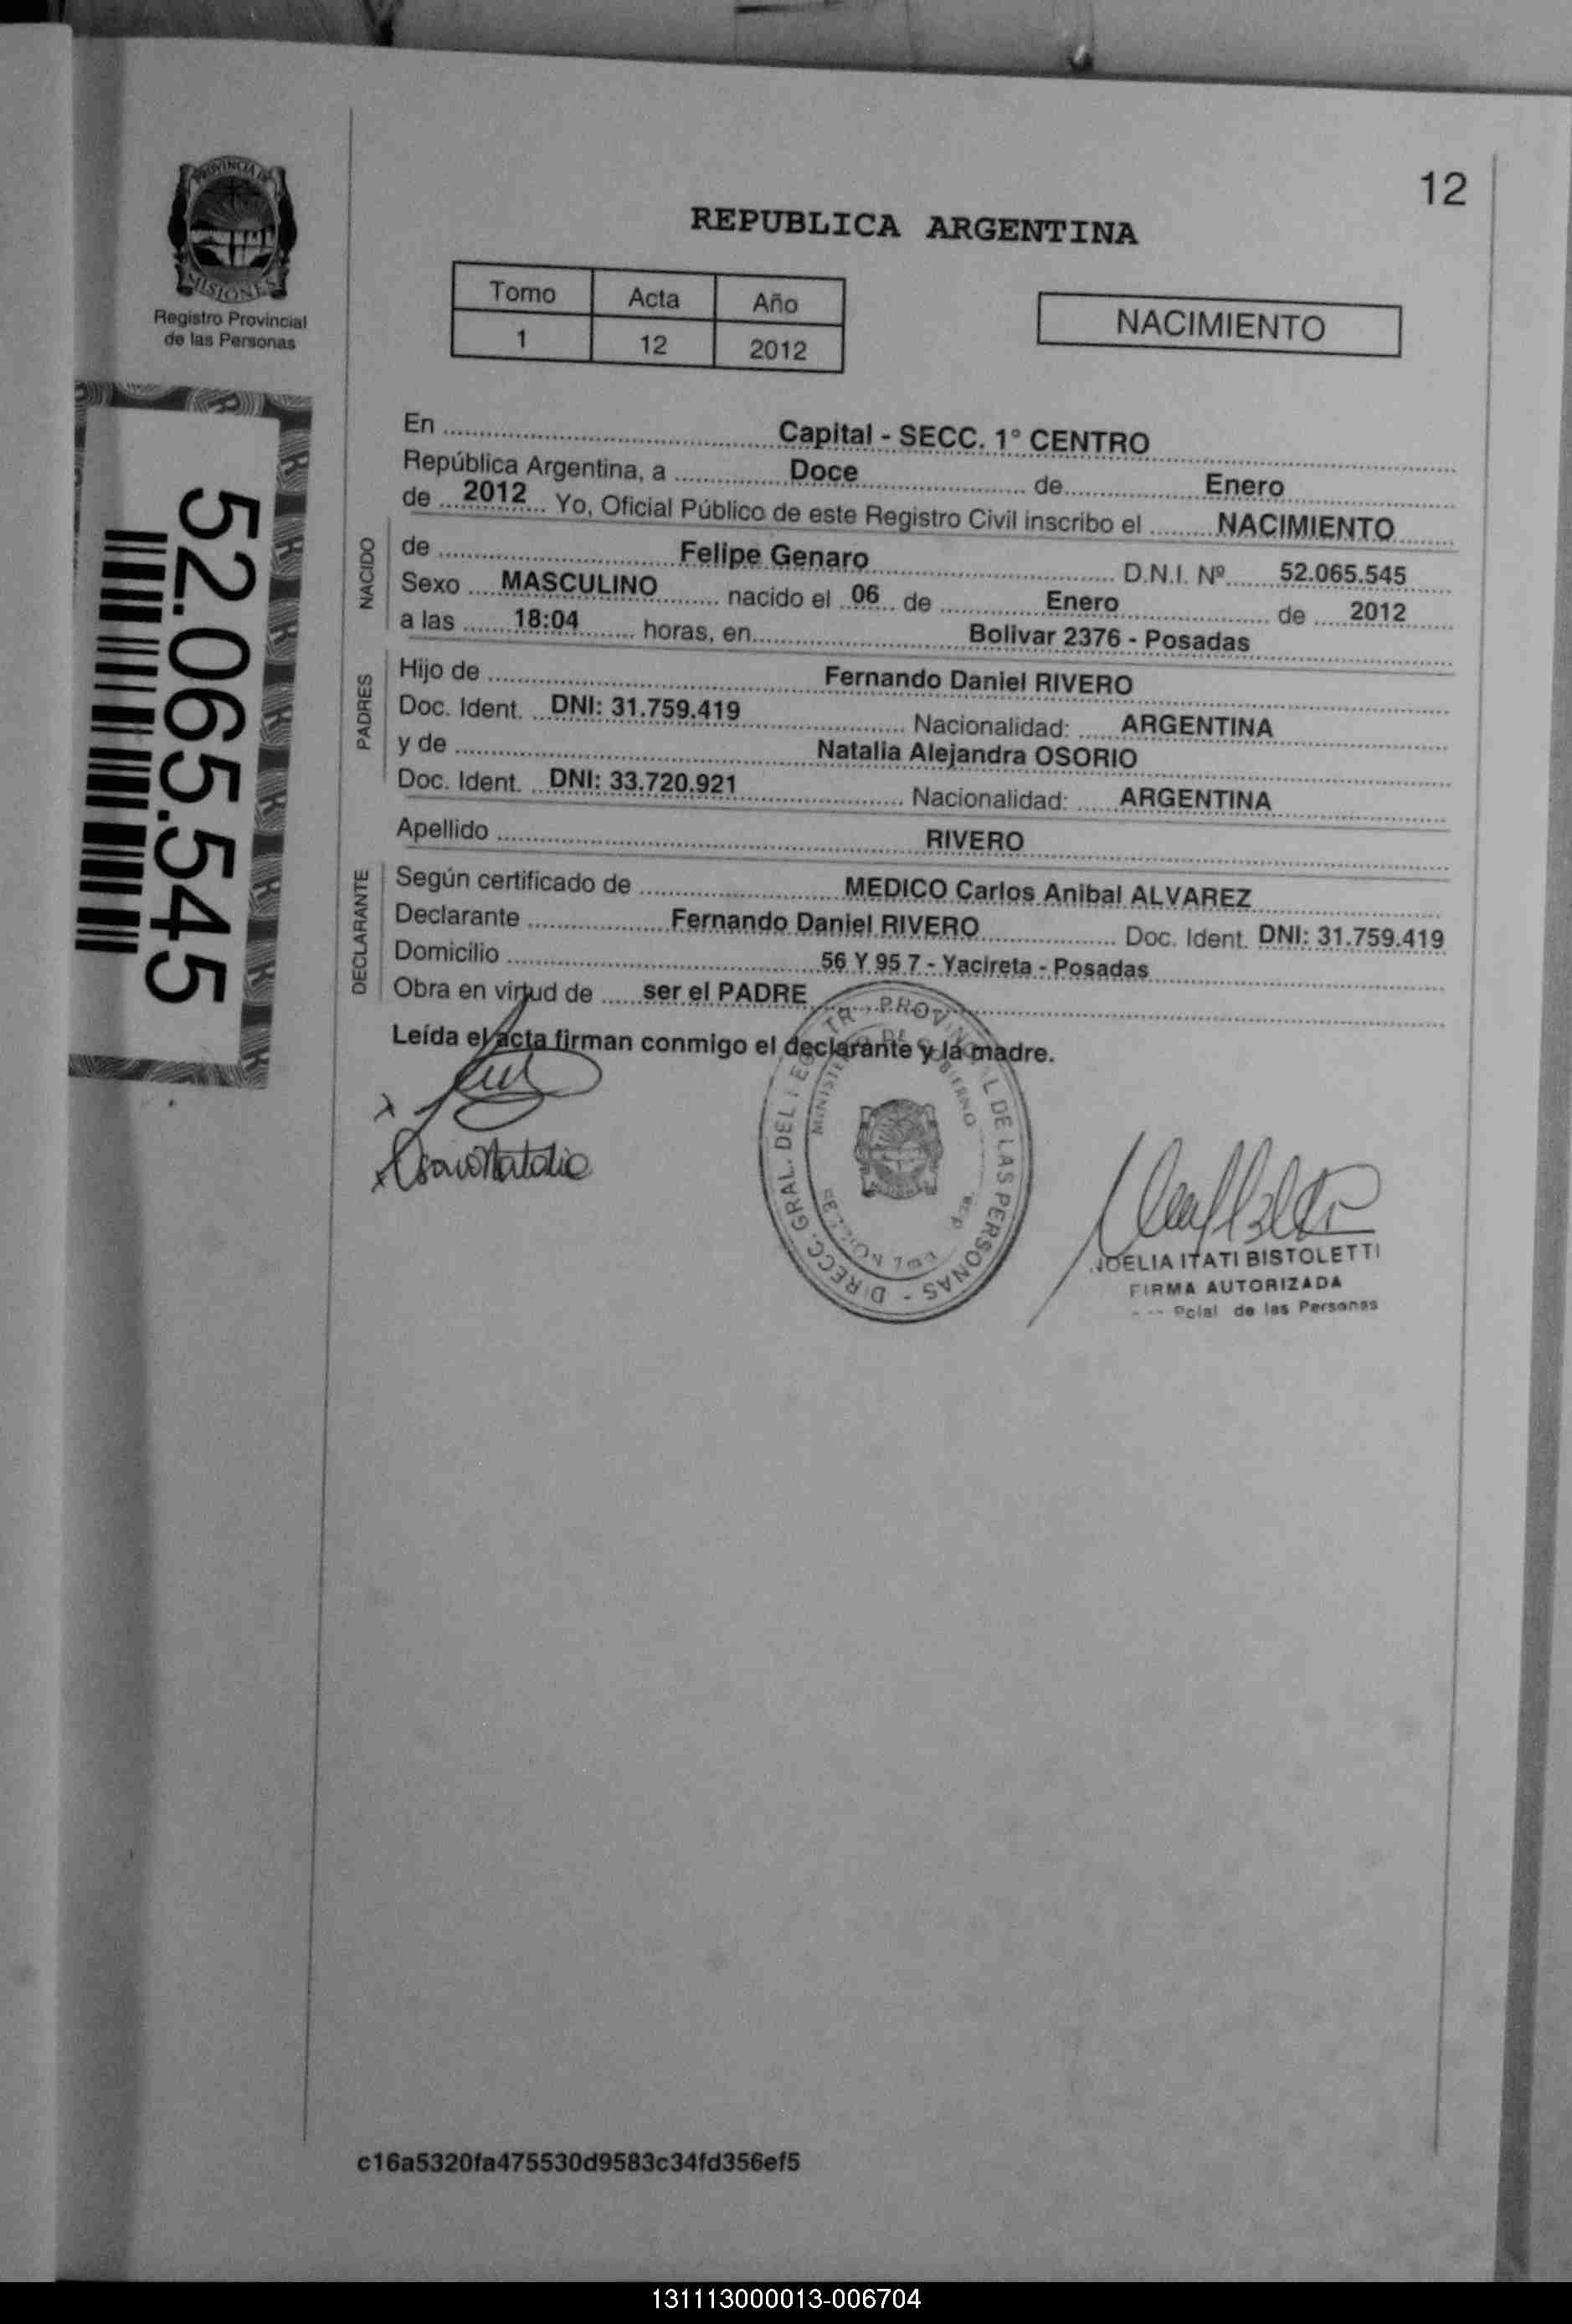 12
REPUBLICA ARGENTINA
PROVINCIA DE
MISIONES
Registro Provincial
de las Personas
Tomo Acta Año
1 12 2012
NACIMIENTO
52.065.545
En Capital - SECC. 1° CENTRO
República Argentina, a Doce de Enero
de 2012 Yo, Oficial Público de este Registro Civil inscribo el NACIMIENTO
NACIDO
de Felipe Genaro D.N.I. Nº 52.065.545
Sexo MASCULINO nacido el 06 de Enero de 2012
a las 18:04 horas, en Bolivar 2376 - Posadas
PADRES
Hijo de Fernando Daniel RIVERO
Doc. Ident. DNI: 31.759.419 Nacionalidad: ARGENTINA
y de Natalia Alejandra OSORIO
Doc. Ident. DNI: 33.720.921 Nacionalidad: ARGENTINA
Apellido RIVERO
DECLARANTE
Según certificado de MEDICO Carlos Anibal ALVAREZ
Declarante Fernando Daniel RIVERO Doc. Ident. DNI: 31.759.419
Domicilio 56 Y 95 7 - Yacireta - Posadas
Obra en virtud de ser el PADRE
Leída el acta firman conmigo el declarante y la madre.
DIRECC. GRAL. DEL PROVINCIAL DE LAS PERSONAS
NOELIA ITATI BISTOLETTI
FIRMA AUTORIZADA
Pcial de las Personas
c16a5320fa475530d9583c34fd356ef5
131113000013-006704